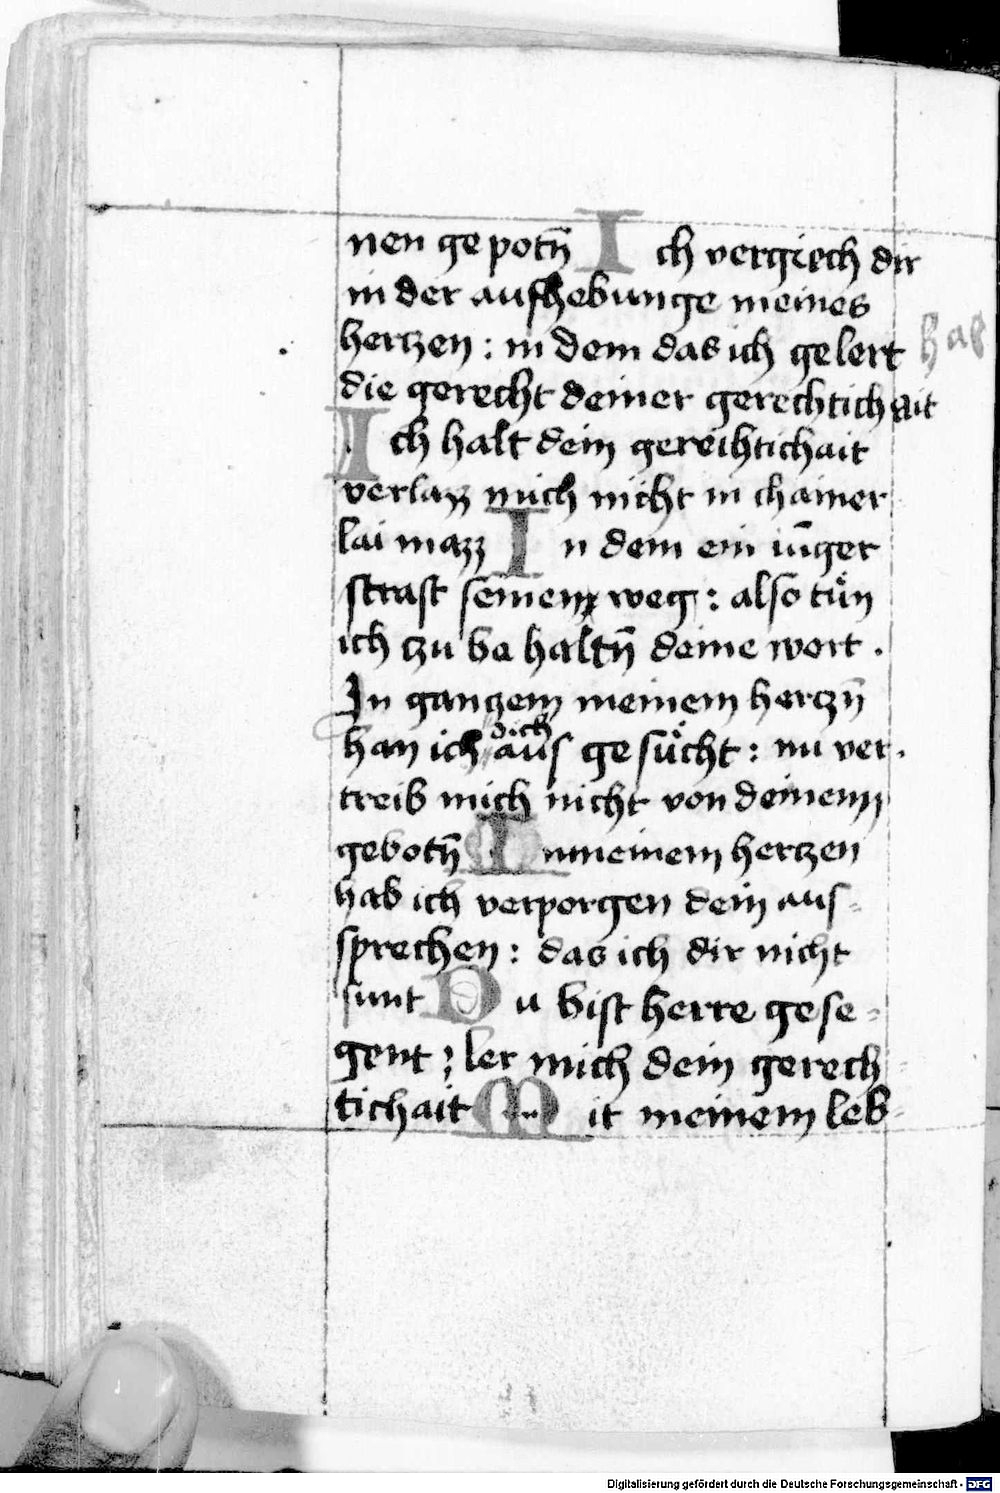 nen gepotn̄ Ich vergiech dir
in der aufhebunge meines
hertzen : in dem das ich gelert hab
die gerecht deiner gerechtichait
Ich halt dein gereihtichait
verlazz mich nicht in chainer
lai mazz In dem ein iūger
strast seinen weg : also tuͤn
ich tzu be haltn̄ deine wort .
In gantzem meinem hertzn̄
han ich dich aus gesuͤcht : nu ver.
treib mich nicht von deinenn
gebotn̄ In meinem hertzen
hab ich verporgen dein aus-
sprechen : das ich dir nicht
sunt Du bist herre gese-
gent ; ler mich dein gerech
tichait Mit meinem leb-
Digitalisierung gefördert durch die Deutsche Forschungsgemeinschaft - DFG